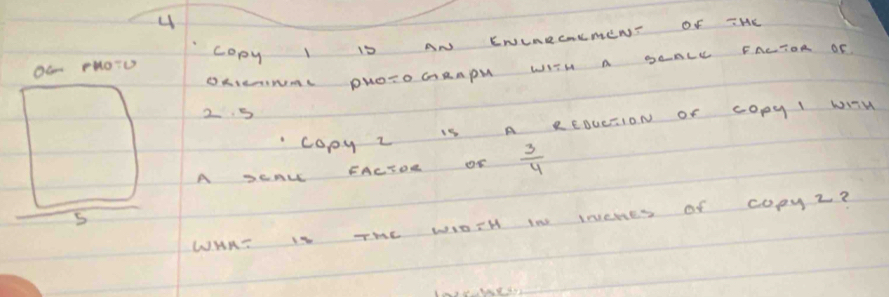 4
· COPY 1 IS AN ENLARGEMENT OF THE
OG PHOTO
ORIGINAL PHOTOGRAPH WITH A SCALE FACTOR OF
2.5
· COPY 2 IS A REDUCTION OF COPY 1 WITH
A SCALE FACTOR OF 3/4
5
WHAT IS THE WIDTH IN INCHES OF COPY 2?